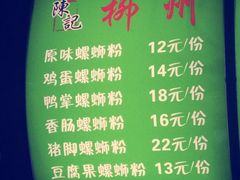 陳記 柳州
原味螺蛳粉 12元/份
鸡蛋螺蛳粉 14元/份
鸭掌螺蛳粉 18元/份
香肠螺蛳粉 16元/份
猪脚螺蛳粉 22元/份
豆腐果螺蛳粉 13元/份